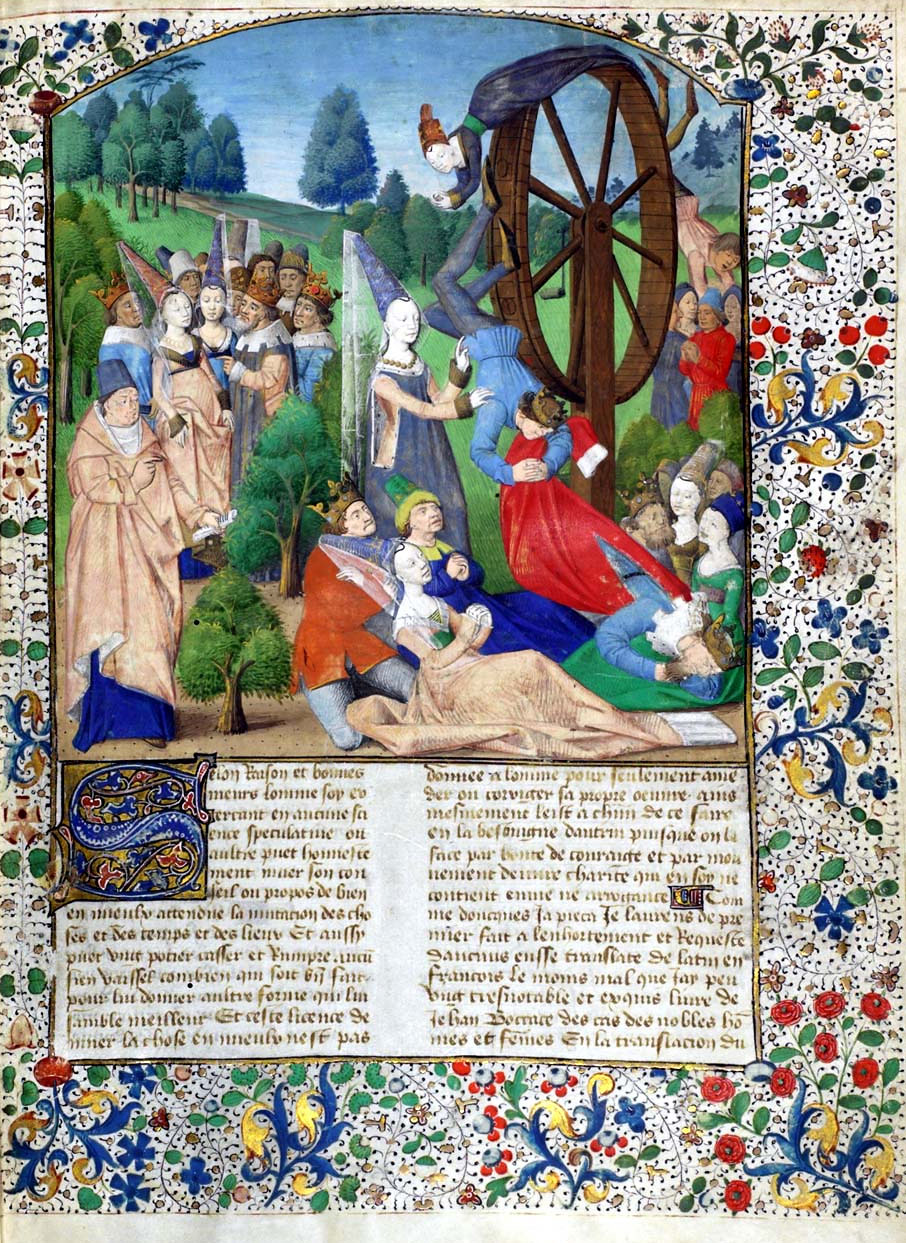 Selon Raison et bonnes
meurs lomme soy ex
ercant en aucune sci
ence speculatiue ou
aultre puet honneste
ment muer son con
seil ou propos de bien
en mieulx attendue la mutacion des cho
ses et des temps et des lieux Et aussy
puet vng potier casser et Rumpre aucū
sien vaissel combien qui soit bñ fait
pour lui donner aultre forme qui lui
samble meilleur Et ceste licence de
muer la chose en mieulx nest pas
donnee a lomme pour seulement ame
der ou corriger sa propre oeuure ains
mesmement leist a chūn de ce faire
en la besoingne daultrui puisque on la
face par bonte de couraige et par mou
uement de vraie charite qui en soy ne
contient enuie ne arrogance Com
me doncques Ja pieca Je laurens de pre
mier fait a lenhortement et Requeste
daucuns eusse translate de latin en
francois le moins mal que Jay peu
vng tresnotable et exquis liure de
Jehan Boccace des cas des nobles hō
mes et femes En la translacion du